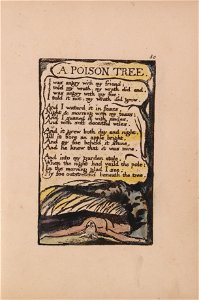 A POISON TREE.
I was angry with my friend;
I told my wrath, my wrath did end.
I was angry with my foe:
I told it not, my wrath did grow.
And I waterd it in fears,
Night & morning with my tears:
And I sunned it with smiles,
And with soft deceitful wiles.
And it grew both day and night,
Till it bore an apple bright.
And my foe beheld it shine,
And he knew that it was mine.
And into my garden stole,
When the night had veild the pole;
In the morning glad I see,
My foe outstretchd beneath the tree.